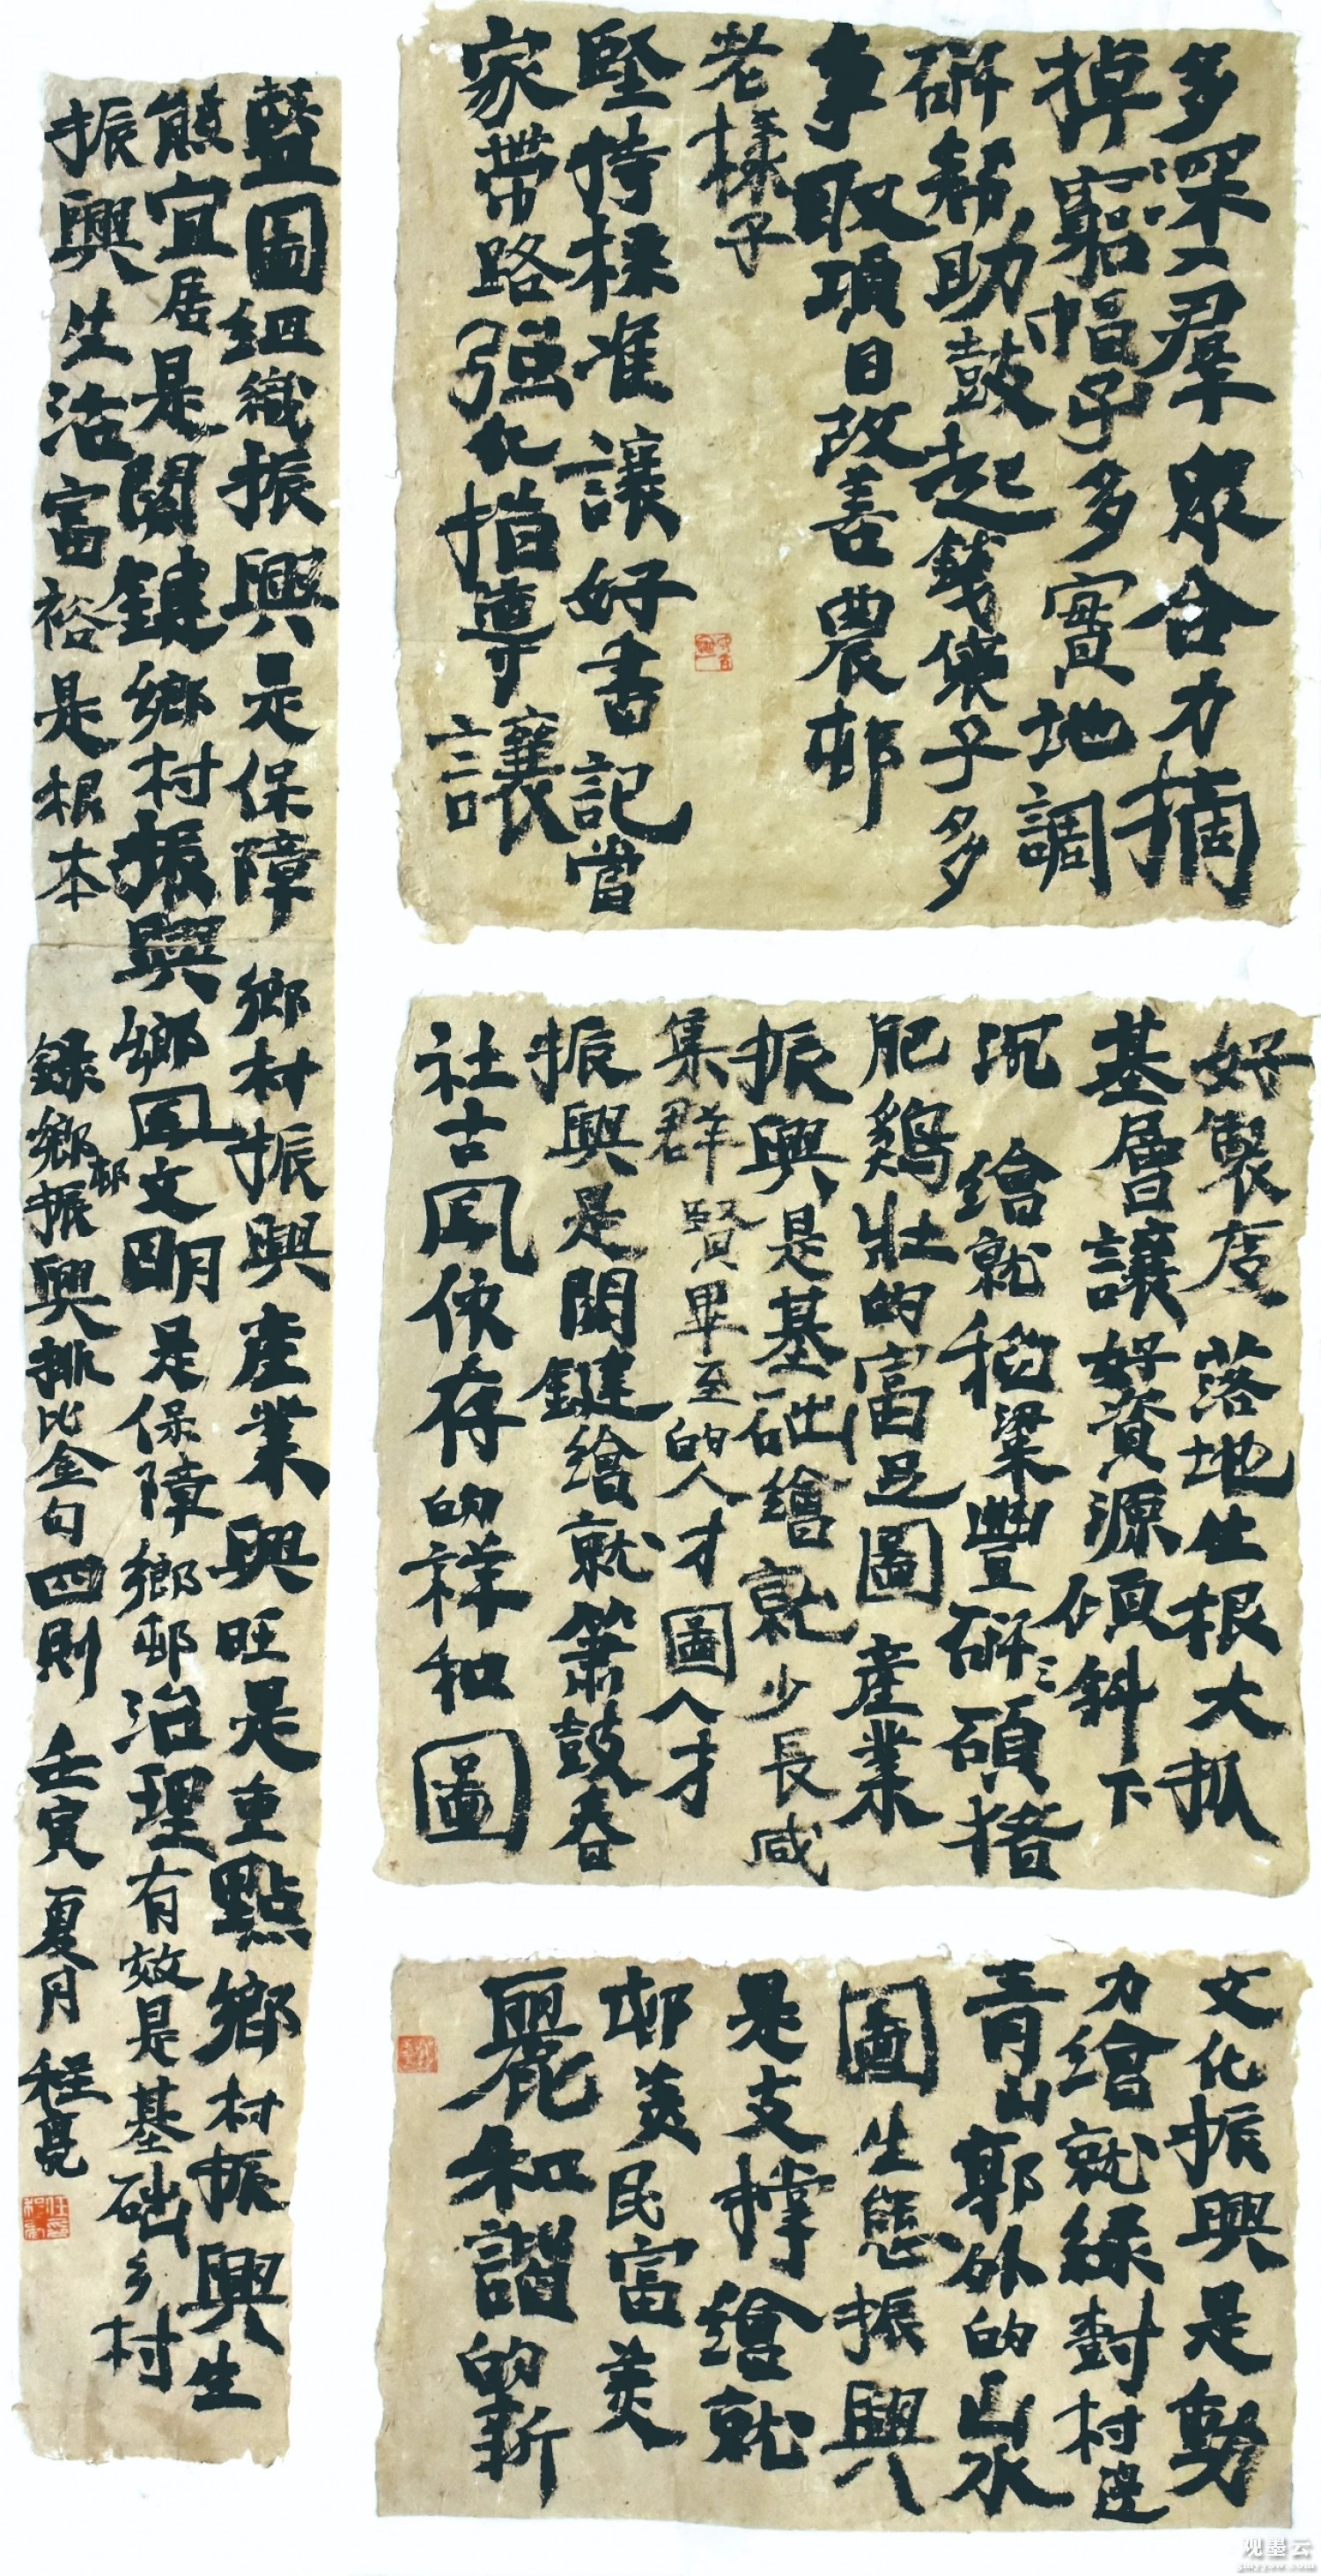 多深入群眾合力摘
掉窮帽子多實地調
研幫助鼓起錢袋子多
爭取項目改善農邨
老樣子
堅持標准讓好書記當
家帶路強化指導讓
好製度落地生根大抓
基層讓好資源傾斜下
沉 繪就稻粱豐碩猪
肥鷄壯的富足圖 產業
振興是基础繪就少長咸
集群賢畢至的人才圖人才
振興是関鍵繪就簫鼓春
社古風依存的祥和圖
文化振興是動
力繪就緑對村邊
青山郭外的山水
圖生態振興
是支撑繪就
邨美民富美
麗和諧的新
藍圖组織振興是保障 鄉村振興產業興旺是重點鄉村振興生
態宜居是関鍵鄉村振興鄉風文明是保障鄉邨治理有效是基础乡村
振興生活富裕是根本
録鄉邨振興排比金句四則 壬寅夏月 程亮
观墨云